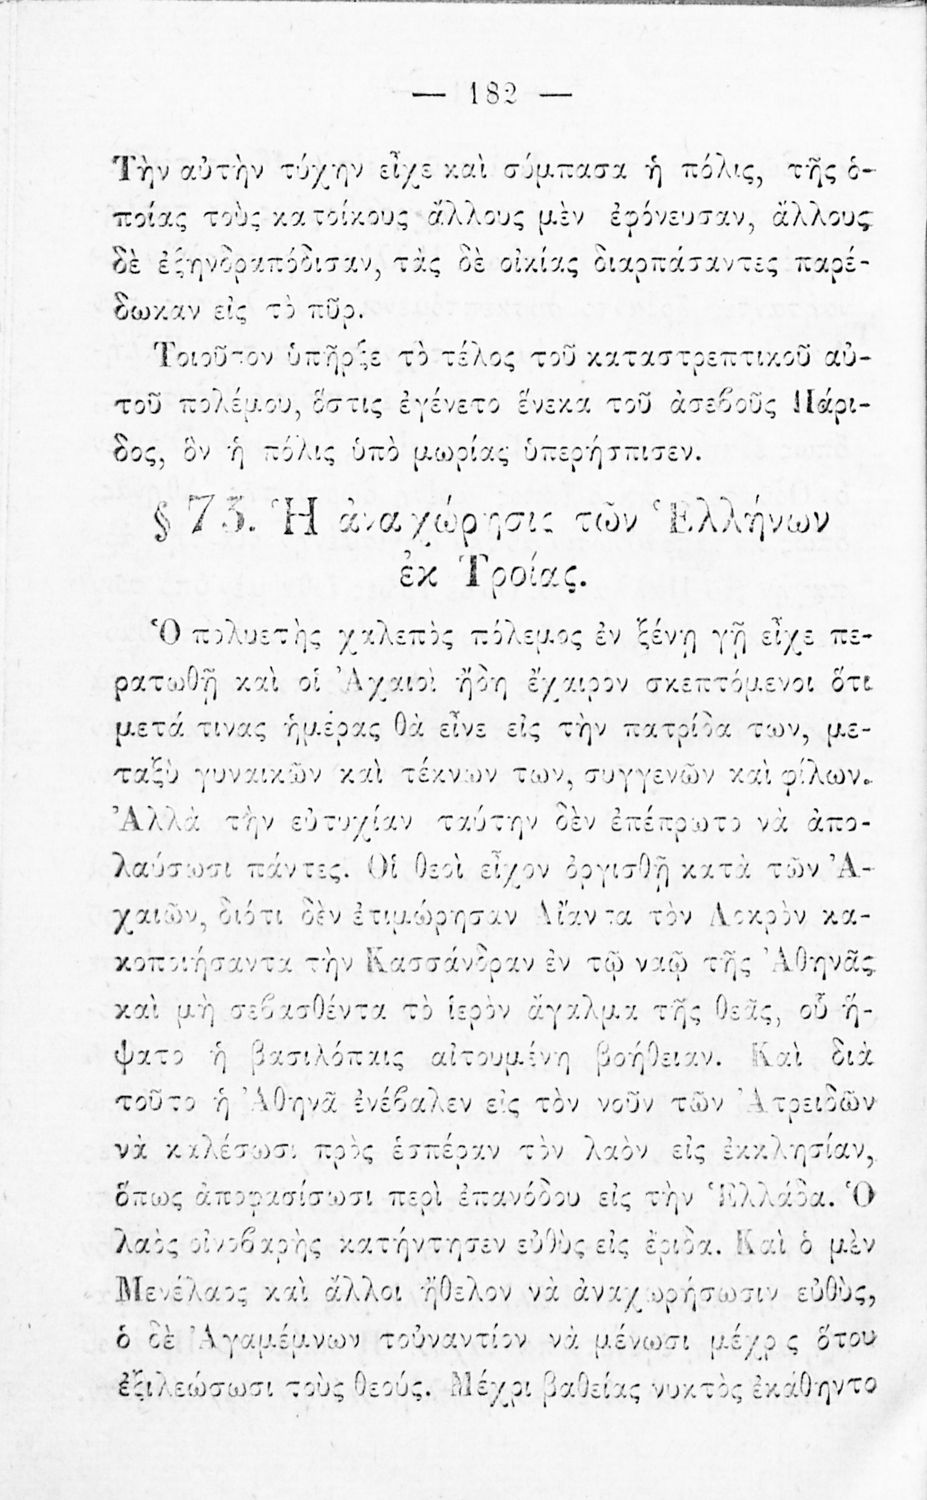 — 182 —
Τὴν αὐτὴν τύχην εἶχε καὶ σύμπασα ἡ πόλις, τῆς ὁ-
ποίας τοὺς κατοίκους ἄλλους μὲν ἐφόνευσαν, ἄλλους
δὲ ἐξηνδραπόδισαν, τὰς δὲ οἰκίας διαρπάσαντες παρέ-
δωκαν εἰς τὸ πῦρ.
Τοιοῦτον ὑπῆρξε τὸ τέλος τοῦ καταστρεπτικοῦ αὐ-
τοῦ πολέμου, ὅστις ἐγένετο ἕνεκα τοῦ ἀσεβοῦς Πάρι-
δος, ὃν ἡ πόλις ὑπὸ μωρίας ὑπερήσπισεν.
§ 73. Ἡ ἀναχώρησις τῶν Ἑλλήνων
ἐκ Τροίας.
Ὁ πολυετὴς χαλεπὸς πόλεμος ἐν ξένῃ γῇ εἶχε πε-
ρατωθῇ καὶ οἱ Ἀχαιοὶ ἤδη ἔχαιρον σκεπτόμενοι ὅτι
μετά τινας ἡμέρας θὰ εἶνε εἰς τὴν πατρίδα των, με-
ταξὺ γυναικῶν καὶ τέκνων των, συγγενῶν καὶ φίλων.
Ἀλλὰ τὴν εὐτυχίαν ταύτην δὲν ἐπέπρωτο νὰ ἀπο-
λαύσωσι πάντες. Οἱ θεοὶ εἶχον ὀργισθῆ κατὰ τῶν Ἀ-
χαιῶν, διότι δὲν ἐτιμώρησαν Αἴαντα τὸν Λοκρὸν κα-
κοποιήσαντα τὴν Κασσάνδραν ἐν τῷ ναῷ τῆς Ἀθηνᾶς
καὶ μὴ σεβασθέντα τὸ ἱερὸν ἄγαλμα τῆς θεᾶς, οὗ ἥ-
ψατο ἡ βασιλόπαις αἰτουμένη βοήθειαν. Καὶ διὰ
τοῦτο ἡ Ἀθηνᾶ ἐνέβαλεν εἰς τὸν νοῦν τῶν Ἀτρειδῶν
νὰ καλέσωσι πρὸς ἑσπέραν τὸν λαὸν εἰς ἐκκλησίαν,
ὅπως ἀποφασίσωσι περὶ ἐπανόδου εἰς τὴν Ἑλλάδα. Ὁ
λαὸς οἰνοβαρὴς κατήντησεν εὐθὺς εἰς ἔριδα. Καὶ ὁ μὲν
Μενέλαος καὶ ἄλλοι ἤθελον νὰ ἀναχωρήσωσιν εὐθὺς,
ὁ δὲ Ἀγαμέμνων τοὐναντίον νὰ μένωσι μέχρις ὅτου
ἐξιλεώσωσι τοὺς θεούς. Μέχρι βαθείας νυκτὸς ἐκάθηντο